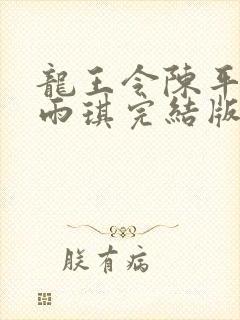 龍王令陳平
雨琪完結版
朕有病